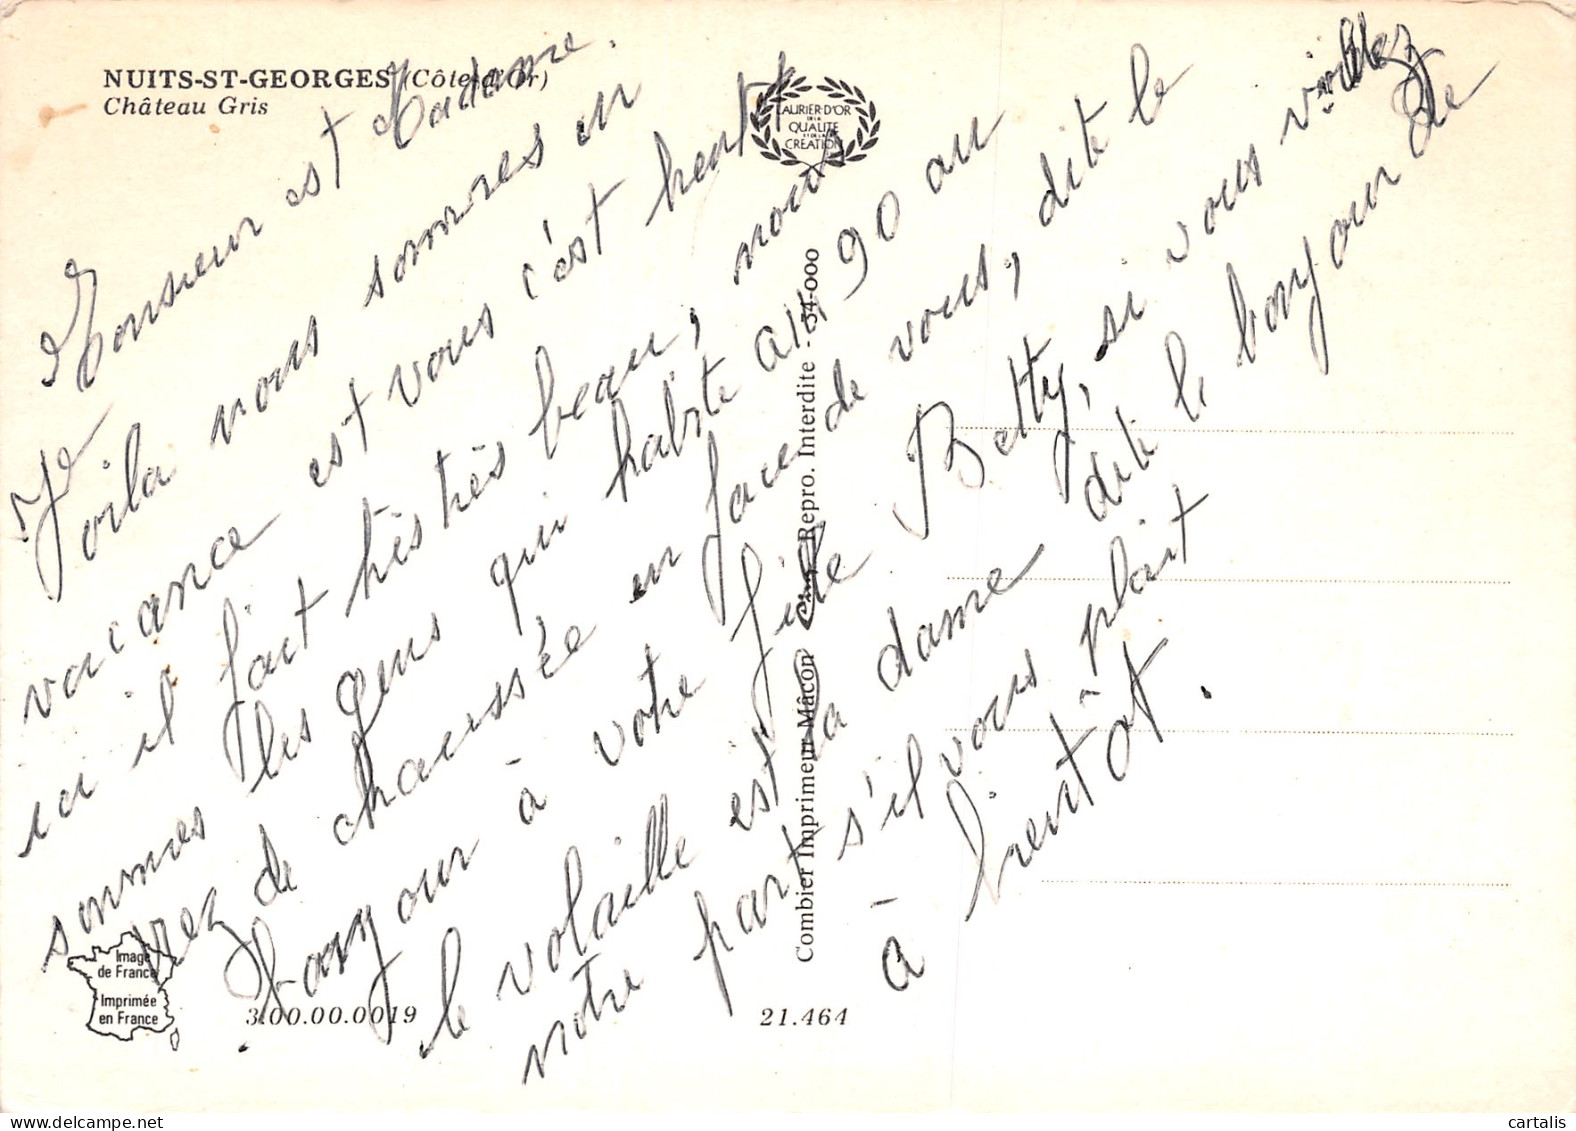 NUITS-ST-GEORGES (Côte-d'Or)
Château Gris
LAURIER-D'OR
DE LA
QUALITE
ET DE LA
CREATION
Monsieur est Madame.
Voila nous sommes en
vacance est vous c'est
ici il fait très très beau, nous
sommes les gens qui habite au 90 au
rez de chaussée en face de vous, dite le
bonjour à votre fille Betty, si vous voulez
le volaille est la dame dite le bonjour de
notre part s'il vous plait
à bientôt.
Combier Imprimeur Mâcon Repro. Interdite - 54-000
Image
de France
Imprimée
en France
3.00.00.0019
21.464
cartalis